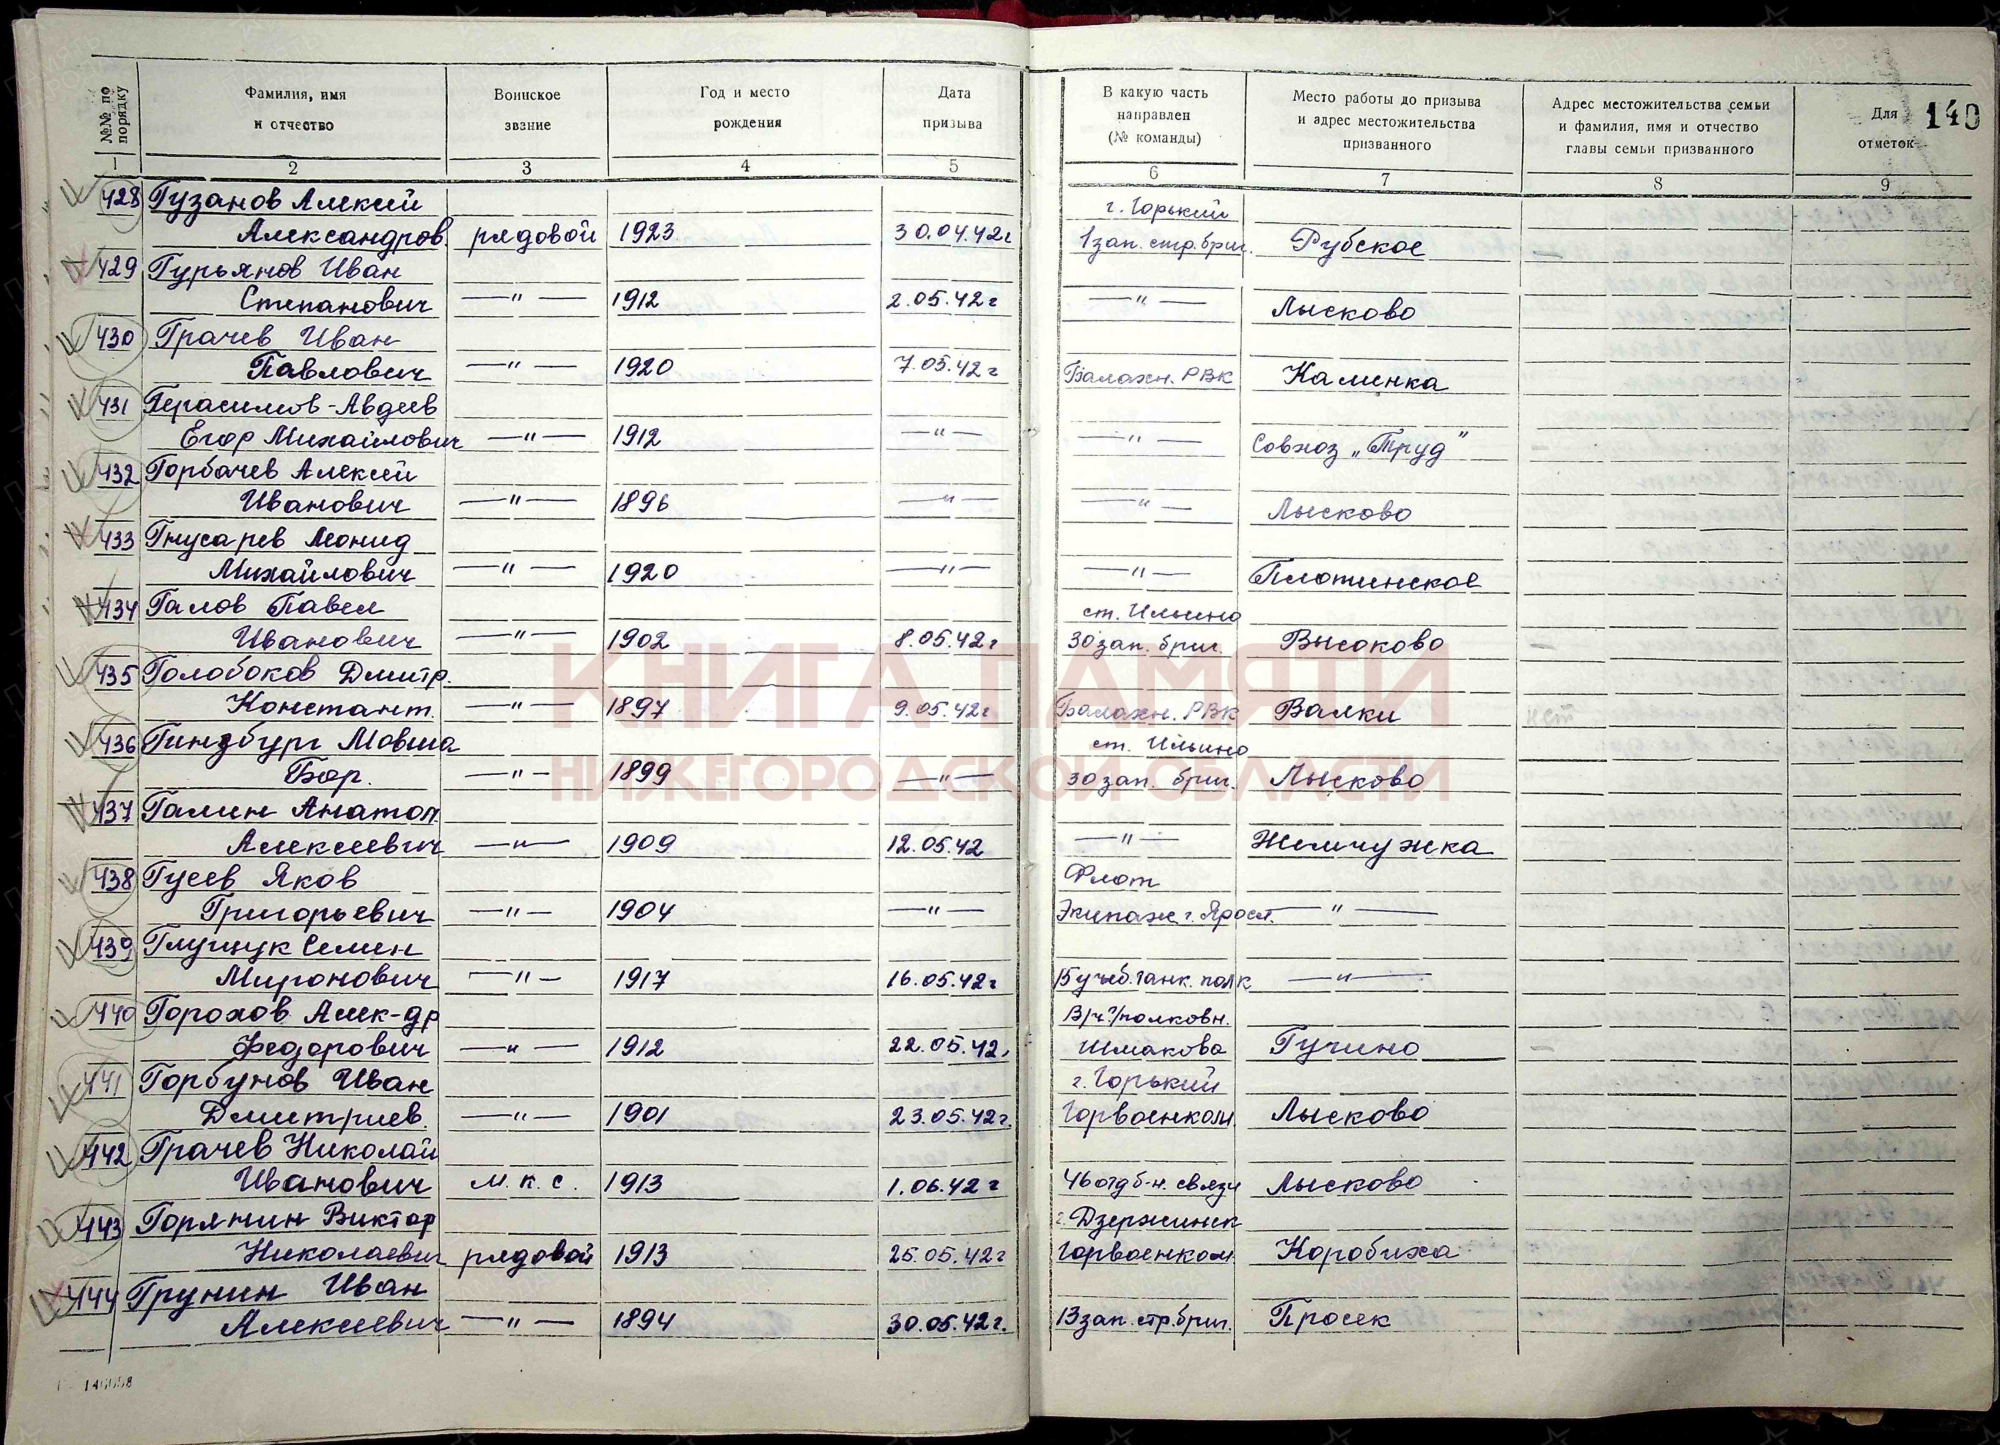 №№ по порядку
Фамилия, имя и отчество
Воинское звание
Год и место рождения
Дата призыва
В какую часть направлен (№ команды)
Место работы до призыва и адрес местожительства призванного
Адрес местожительства семьи и фамилия, имя и отчество главы семьи призванного
Для отметок
140
1 2 3 4 5 6 7 8 9
428 Гузанов Алексей г. Горький
Александров. рядовой 1923 30.04.42г 1 зап. стр. бриг. Рубское —
429 Гурьянов Иван
Степанович —"— 1912 2.05.42г —"— Лысково
430 Грачев Иван
Павлович —"— 1920 7.05.42г Балахн. РВК Каменка
431 Герасимов-Авдеев
Егор Михайлович —"— 1912 —"— —"— Совхоз „Труд" —
432 Горбачев Алексей
Иванович —"— 1896 —"— —"— Лысково
433 Гнусарев Леонид
Михайлович —"— 1920 —"— —"— Плотинское
434 Галов Павел ст. Ильино
Иванович —"— 1902 8.05.42г 30 зап. бриг. Высоково —
435 Голобоков Дмитр.
Констант. —"— 1897 9.05.42г Балахн. РВК Валки
436 Гинзбург Мовша ст. Ильино
Бор. —"— 1899 —"— 30 зап. бриг. Лысково
437 Галин Анатол.
Алексеевич —"— 1909 12.05.42 —"— Жемчужка
438 Гусев Яков Флот
Григорьевич —"— 1904 —"— Экипаж г. Яросл. —"—
439 Глущук Семен
Миронович —"— 1917 16.05.42г 15 учеб. танк. полк —"—
440 Горохов Алек-др В/ч полковн.
Федорович —"— 1912 22.05.42г Шмакова Гугино —
441 Горбунов Иван г. Горький
Дмитриев. —"— 1901 23.05.42г. Горвоенком. Лысково
442 Грачев Николай
Иванович м.к.с. 1913 1.06.42г 46 отд б-н. связи Лысково
443 Горянин Виктор г. Дзержинск
Николаевич рядовой 1913 25.05.42г Горвоенком Коробиха
444 Грунин Иван
Алексеевич —"— 1894 30.05.42г. 13 зап. стр. бриг. Просек
КНИГА ПАМЯТИ
НИЖЕГОРОДСКОЙ ОБЛАСТИ